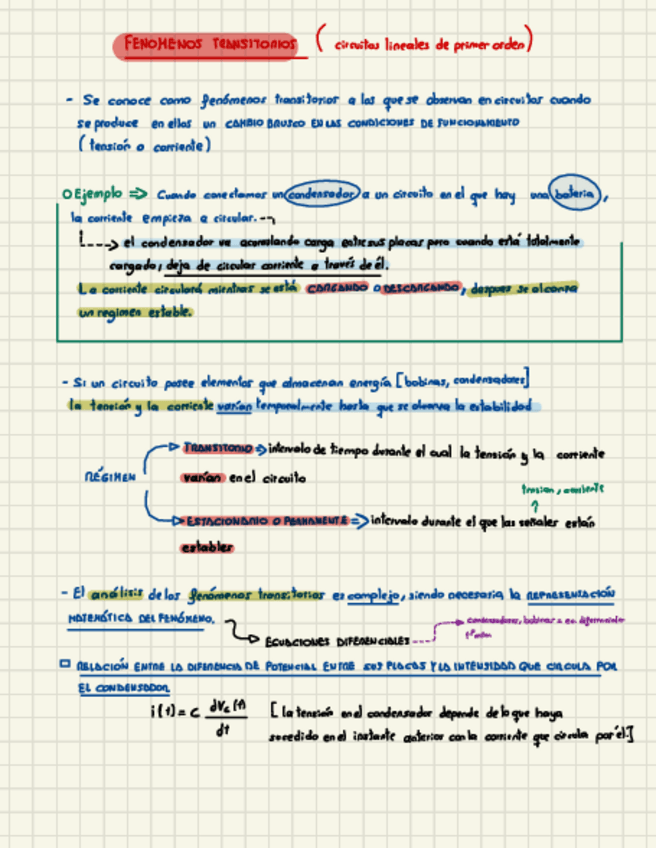 FENÓMENOS TRANSITORIOS (circuitos lineales de primer orden)
- Se conoce como fenómenos transitorios a los que se observan en circuitos cuando
se produce en ellos un CAMBIO BRUSCO EN LAS CONDICIONES DE FUNCIONAMIENTO
(tensión o corriente)
O Ejemplo => Cuando conectamos un condensador a un circuito en el que hay una batería,
la corriente empieza a circular.
el condensador va acumulando carga entre sus placas pero cuando está totalmente
cargado, deja de circular corriente a través de él.
La corriente circulará mientras se está CARGANDO o DESCARGANDO, después se alcanza
un regimen estable.
- Si un circuito posee elementos que almacenan energía [bobinas, condensadores]
la tensión y la corriente varían temporalmente hasta que se observa la estabilidad
TRANSITORIO => intervalo de tiempo durante el cual la tensión y la corriente
RÉGIMEN
varían en el circuito
tension, corriente
ESTACIONARIO O PERMANENTE => intervalo durante el que las señales están
estables
- El análisis de los fenómenos transitorios es complejo, siendo necesaria la REPRESENTACIÓN
MATEMÁTICA DEL FENÓMENO.
condensadores, bobinas = ec. diferenciales
ECUACIONES DIFERENCIALES
RELACIÓN ENTRE LA DIFERENCIA DE POTENCIAL ENTRE SUS PLACAS Y LA INTENSIDAD QUE CIRCULA POR
EL CONDENSADOR
i(t) = C dVc(t) / dt [la tensión en el condensador depende de lo que haya
sucedido en el instante anterior con la corriente que circula por él.]